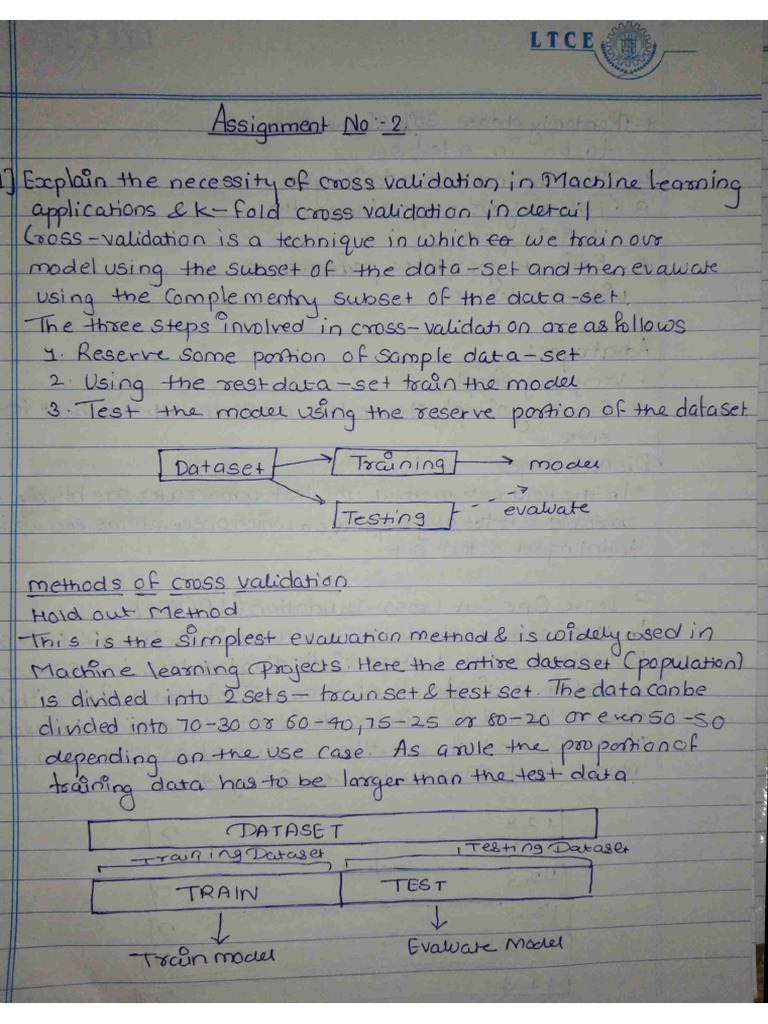 LTCE
Assignment No:-2
1] Explain the necessity of cross validation in Machine learning
applications & k-fold cross validation in detail
Cross-validation is a technique in which we train our
model using the subset of the data-set and then evaluate
using the complementry subset of the data-set.
The three steps involved in cross-validation are as follows
1. Reserve some portion of sample data-set
2. Using the rest data-set train the model
3. Test the model using the reserve portion of the dataset
Dataset → Training → model
Testing → evaluate
methods of cross validation
Hold out Method
This is the simplest evaluation method & is widely used in
Machine learning projects. Here the entire dataset (population)
is divided into 2 sets – train set & test set. The data can be
divided into 70-30 or 60-40, 75-25 or 80-20 or even 50-50
depending on the use case. As a rule the proportion of
training data has to be larger than the test data.
DATASET
Training Dataset Testing Dataset
TRAIN TEST
Train model Evaluate Model